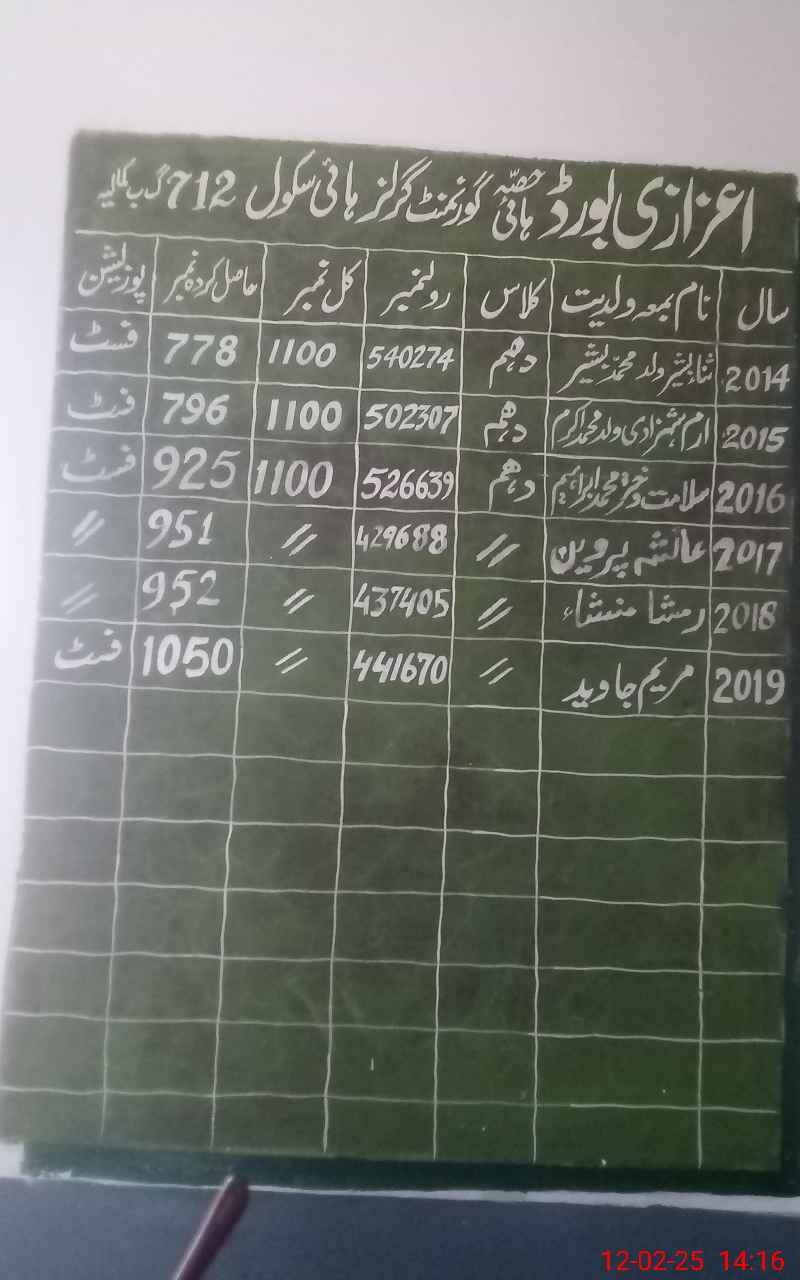 اعزازی بورڈ حصّہ ہائی گورنمنٹ گرلز ہائی سکول 712 گ ب کمالیہ
سال نام بمعہ ولدیت کلاس رولنمبر کل نمبر حاصل کردہ نمبر پوزیشن
2014 ثناء بشیر ولد محمد بشیر دھم 540274 1100 778 فسٹ
2015 ارم شہزادی ولد محمد اکرم دھم 502307 1100 796 فسٹ
2016 سلامت دختر محمد ابراہیم دھم 526639 1100 925 فسٹ
2017 عائشہ پروین 〃 429688 〃 951 〃
2018 رمشا منشاء 〃 437405 〃 952 〃
2019 مریم جاوید 〃 441670 〃 1050 فسٹ
12-02-25 14:16